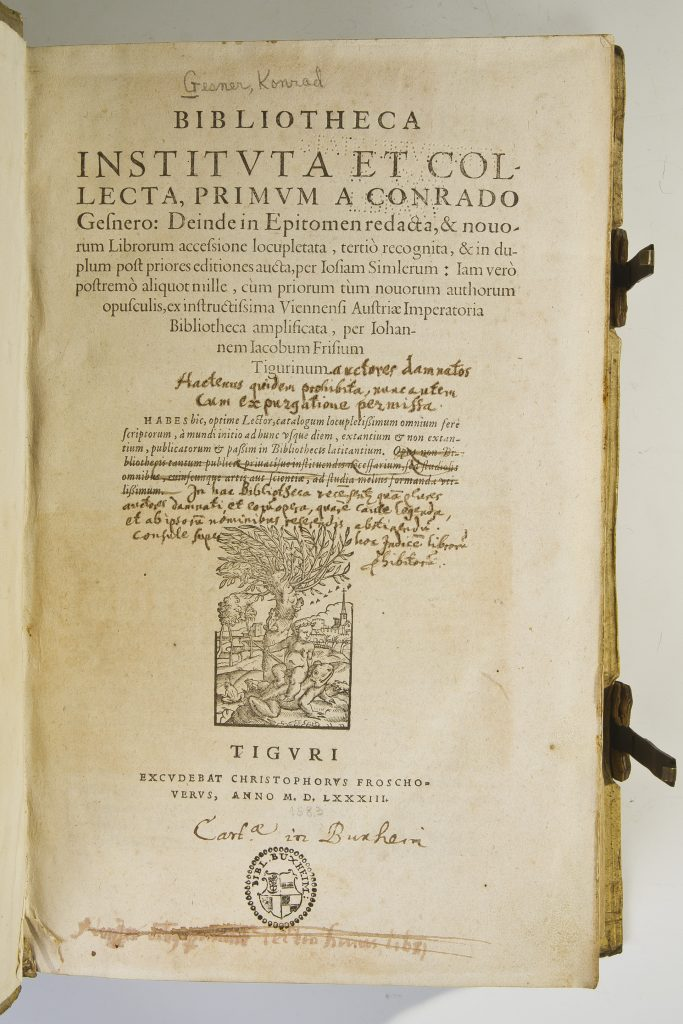 Gesner, Konrad
BIBLIOTHECA
INSTITVTA ET COL-
LECTA, PRIMVM A CONRADO
Geſnero: Deinde in Epitomen redacta, & nouo-
rum Librorum acceſsione locupletata, tertiò recognita, & in du-
plum poſt priores editiones aucta, per Ioſiam Simlerum: Iam verò
poſtremò aliquot mille, cùm priorum tùm nouorum authorum
opuſculis, ex inſtructiſsima Viennenſi Auſtriæ Imperatoria
Bibliotheca amplificata, per Iohan-
nem Iacobum Friſium
Tigurinum. auctores damnatos
Hactenus quidem prohibita, nunc autem
Cum expurgatione permissa.
HABES hîc, optime Lector, catalogum locupletiſsimum omnium ferè
ſcriptorum, à mundi initio ad hunc vſque diem, extantium & non extan-
tium, publicatorum & paſsim in Bibliothecis latitantium. Opus non Bi-
bliothecis tantum publicis priuatiſue inſtituendis neceſſarium, ſed ſtudioſis
omnibus, cuiuſcunque artis aut ſcientiæ, ad ſtudia melius formanda vti-
liſsimum. In hac Bibliotheca plures
auctores damnati et opera, quare caute legenda,
et ab nominibus abstinendū.
Consule hoc Indicē librorū
TIGVRI
EXCVDEBAT CHRISTOPHORVS FROSCHO-
VERVS, ANNO M. D. LXXXIII.
1583
Cartᵃ in Buxheim
BIBL. BUXHEIM